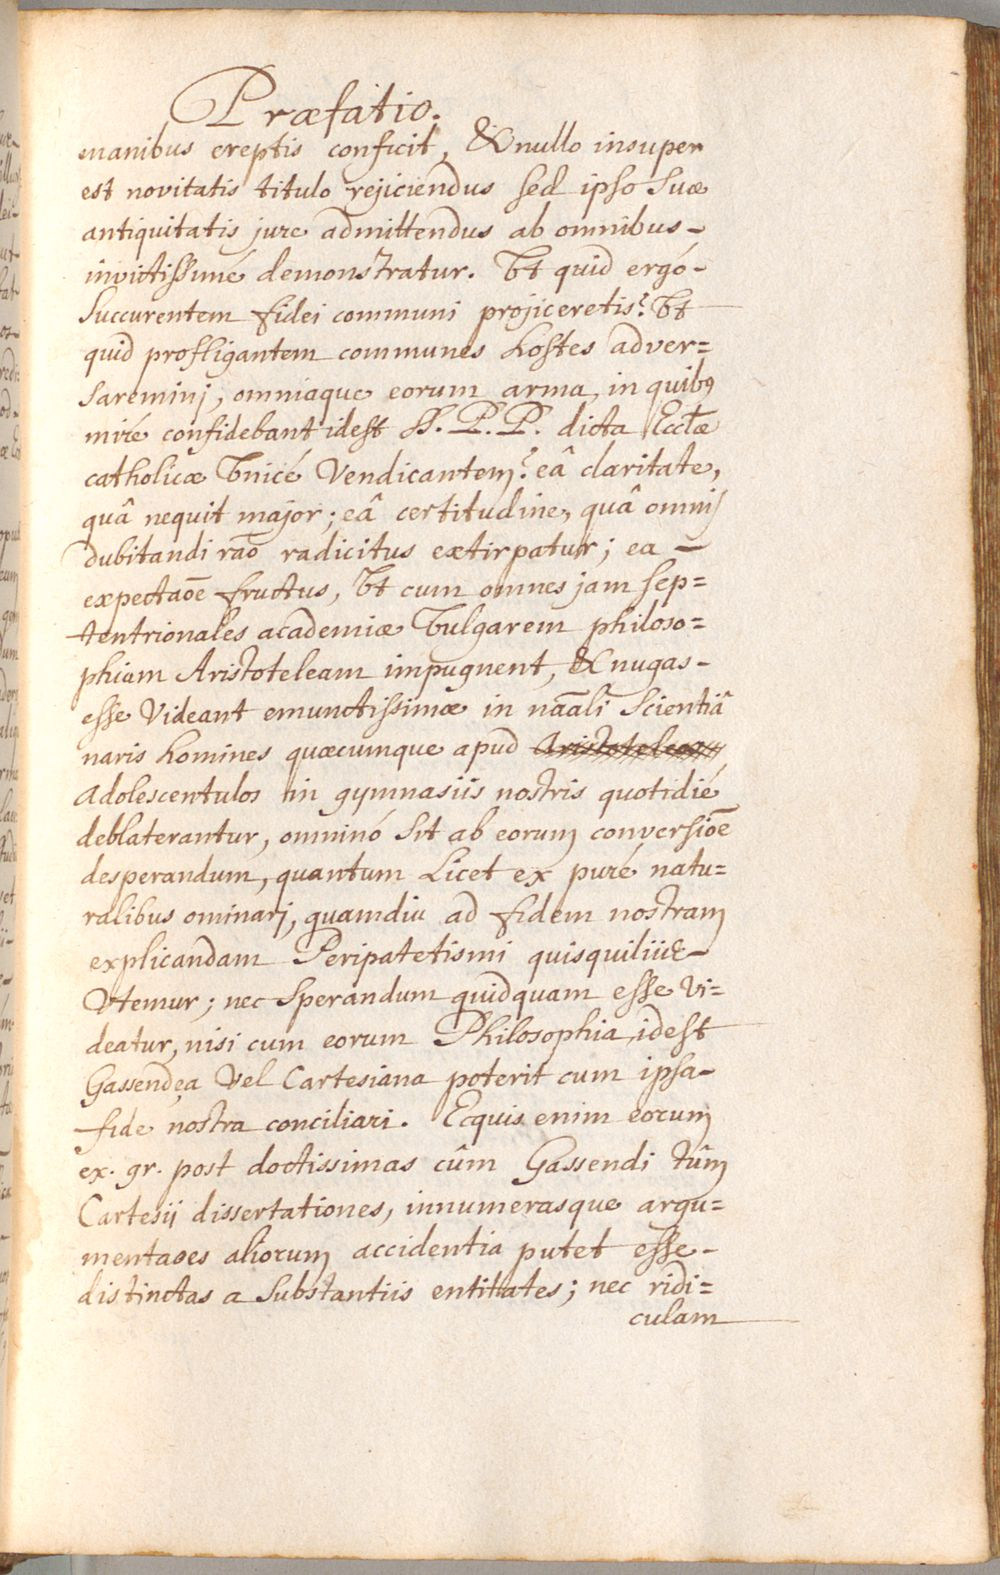 Præfatio.
manibus ereptis conficit, & nullo insuper
est novitatis titulo rejiciendus sed ipso suæ
antiquitatis jure admittendus ab omnibus-
invictissimé demonstratur. Vt quid ergó-
Succurentem fidei communi projiceretis? Vt
quid profligantem communes hostes adver=
saremini, omniaque eorum arma, in quibꝰ
miré confidebant idest SS. P. P. dicta Eccłæ
catholicæ Vnicé Vendicantem? eâ claritate,
quâ nequit major; eâ certitudine, quâ omnis
dubitandi rāo radicitus extirpatur; ea -
expectaōe fructus, Vt cum omnes jam sep=
tentrionales academiæ Vulgarem philoso=
phiam Aristoteleam impugnent, & nugas-
esse Videant emunctissimæ in nāali Scientiâ
naris homines quæcumque apud Aristoteleos
Adolescentulos in gymnasiis nostris quotidié
deblaterantur, omninó sit ab eorum conversiōe
desperandum, quantum Licet ex puré natu=
ralibus ominari, quamdiu ad fidem nostram
explicandam Peripatetismi quisquiliis-
Vtemur; nec sperandum quidquam esse Vi=
deatur, nisi cum eorum Philosophia, idest
Gassendęa Vel Cartesiana poterit cum ipsa-
fide nostra conciliari. Ecquis enim eorum
ex. gr. post doctissimas cûm Gassendi tûm
Cartesij dissertationes, innumerasque argu=
mentaoes aliorum accidentia putet esse-
distinctas a Substantiis entitates; nec ridi=
culam